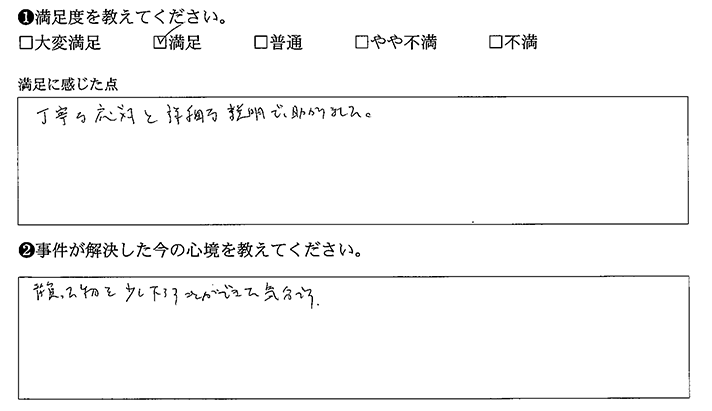 ❶満足度を教えてください。
□大変満足 ☑満足 □普通 □やや不満 □不満
満足に感じた点
丁寧な応対と詳細な説明で、助かりました。
❷事件が解決した今の心境を教えてください。
背負った物を少し下ろすことができた気分です。